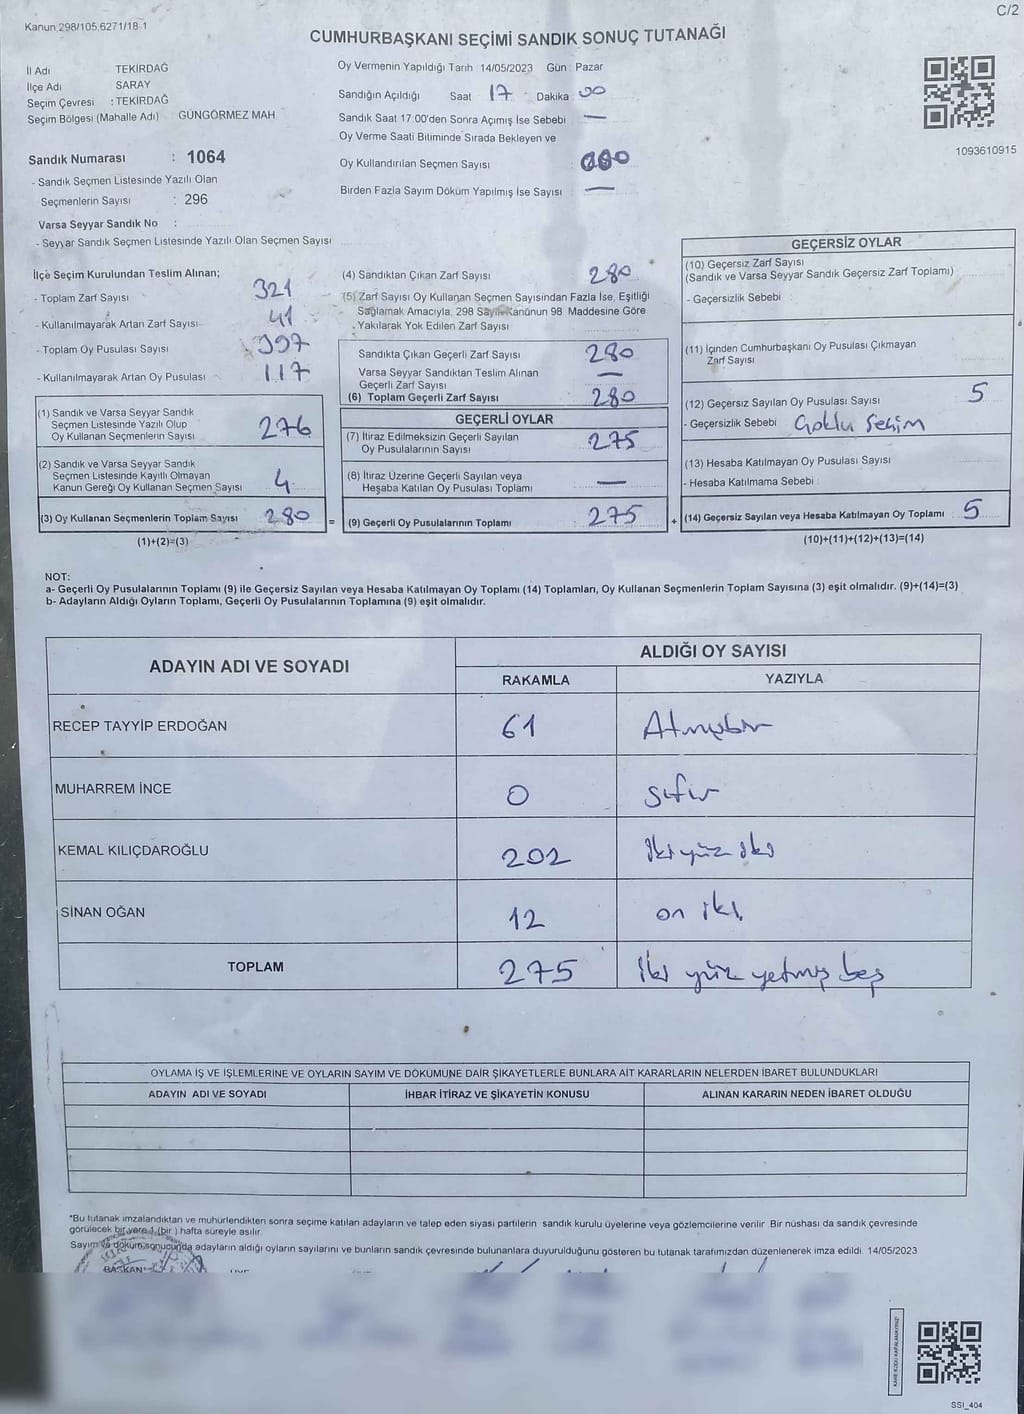 Kanun 298/105,6271/18-1
C/2
CUMHURBAŞKANI SEÇİMİ SANDIK SONUÇ TUTANAĞI
İl Adı TEKİRDAĞ
İlçe Adı SARAY
Seçim Çevresi : TEKİRDAĞ
Seçim Bölgesi (Mahalle Adı) GÜNGÖRMEZ MAH.
Sandık Numarası : 1064
- Sandık Seçmen Listesinde Yazılı Olan
Seçmenlerin Sayısı : 296
Varsa Seyyar Sandık No :
- Seyyar Sandık Seçmen Listesinde Yazılı Olan Seçmen Sayısı
Oy Vermenin Yapıldığı Tarih 14/05/2023 Gün : Pazar
Sandığın Açıldığı Saat 17 Dakika 00
Sandık Saat 17:00'den Sonra Açımış İse Sebebi —
Oy Verme Saati Bitiminde Sırada Bekleyen ve
Oy Kullandırılan Seçmen Sayısı
Birden Fazla Sayım Döküm Yapılmış İse Sayısı —
1093610915
İlçe Seçim Kurulundan Teslim Alınan;
- Toplam Zarf Sayısı 321
- Kullanılmayarak Artan Zarf Sayısı 41
- Toplam Oy Pusulası Sayısı 397
- Kullanılmayarak Artan Oy Pusulası 117
(1) Sandık ve Varsa Seyyar Sandık
Seçmen Listesinde Yazılı Olup
Oy Kullanan Seçmenlerin Sayısı 276
(2) Sandık ve Varsa Seyyar Sandık
Seçmen Listesinde Kayıtlı Olmayan
Kanun Gereği Oy Kullanan Seçmen Sayısı 4
(3) Oy Kullanan Seçmenlerin Toplam Sayısı 280
(1)+(2)=(3)
(4) Sandıktan Çıkan Zarf Sayısı 280
(5) Zarf Sayısı Oy Kullanan Seçmen Sayısından Fazla İse, Eşitliği
Sağlamak Amacıyla, 298 Sayılı Kanunun 98. Maddesine Göre
Yakılarak Yok Edilen Zarf Sayısı
Sandıkta Çıkan Geçerli Zarf Sayısı 280
Varsa Seyyar Sandıktan Teslim Alınan
Geçerli Zarf Sayısı —
(6) Toplam Geçerli Zarf Sayısı 280
GEÇERLİ OYLAR
(7) İtiraz Edilmeksizin Geçerli Sayılan
Oy Pusulalarının Sayısı 275
(8) İtiraz Üzerine Geçerli Sayılan veya
Hesaba Katılan Oy Pusulası Toplamı —
= (9) Geçerli Oy Pusulalarının Toplamı : 275
GEÇERSİZ OYLAR
(10) Geçersiz Zarf Sayısı
(Sandık ve Varsa Seyyar Sandık Geçersiz Zarf Toplamı)
- Geçersizlik Sebebi :
(11) İçinden Cumhurbaşkanı Oy Pusulası Çıkmayan
Zarf Sayısı
(12) Geçersiz Sayılan Oy Pusulası Sayısı 5
- Geçersizlik Sebebi Çoklu Seçim
(13) Hesaba Katılmayan Oy Pusulası Sayısı
- Hesaba Katılmama Sebebi :
+ (14) Geçersiz Sayılan veya Hesaba Katılmayan Oy Toplamı 5
(10)+(11)+(12)+(13)=(14)
NOT:
a- Geçerli Oy Pusulalarının Toplamı (9) ile Geçersiz Sayılan veya Hesaba Katılmayan Oy Toplamı (14) Toplamları, Oy Kullanan Seçmenlerin Toplam Sayısına (3) eşit olmalıdır. (9)+(14)=(3)
b- Adayların Aldığı Oyların Toplamı, Geçerli Oy Pusulalarının Toplamına (9) eşit olmalıdır.
ADAYIN ADI VE SOYADI
ALDIĞI OY SAYISI
RAKAMLA YAZIYLA
RECEP TAYYİP ERDOĞAN 61 Atmışbir
MUHARREM İNCE 0 Sıfır
KEMAL KILIÇDAROĞLU 202 İki yüz iki
SİNAN OĞAN 12 on iki
TOPLAM 275 İki yüz yetmiş beş
OYLAMA İŞ VE İŞLEMLERİNE VE OYLARIN SAYIM VE DÖKÜMÜNE DAİR ŞİKAYETLERLE BUNLARA AİT KARARLARIN NELERDEN İBARET BULUNDUKLARI
ADAYIN ADI VE SOYADI İHBAR İTİRAZ VE ŞİKAYETİN KONUSU ALINAN KARARIN NEDEN İBARET OLDUĞU
*Bu tutanak imzalandıktan ve mühürlendikten sonra seçime katılan adayların ve talep eden siyasi partilerin sandık kurulu üyelerine veya gözlemcilerine verilir. Bir nüshası da sandık çevresinde
görülecek bir yere 1 (bir) hafta süreyle asılır.
Sayım ve döküm sonucunda adayların aldığı oyların sayılarını ve bunların sandık çevresinde bulunanlara duyurulduğunu gösteren bu tutanak tarafımızdan düzenlenerek imza edildi. 14/05/2023
BAŞKAN
KARE KODU KAPALAMAYINIZ!
SSI_404